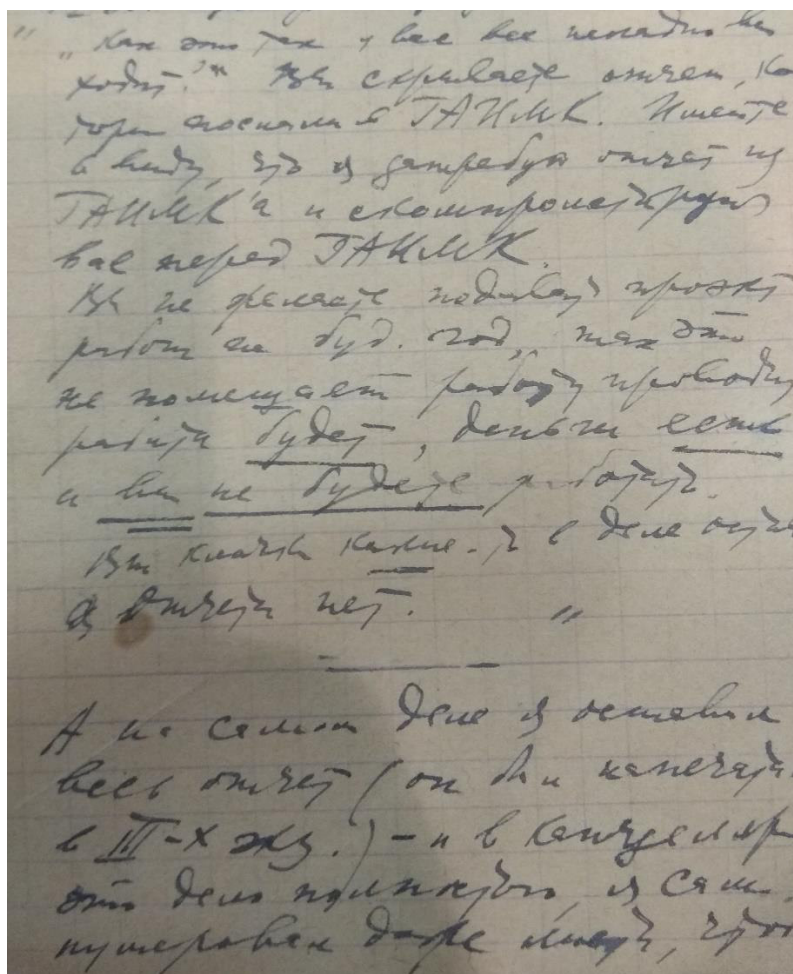 „Как это так у вас все неладно вы
ходит?" Вы скрываете отчет, ко
торый послали в ГАИМК. Имейте
в виду, что я затребую отчет из
ГАИМК'а и скомпрометирую
вас перед ГАИМК.
Вы не желаете подавать проэкт
работ на буд. год, так это
не помешает работу проводить
работа будет, деньги есть
и вы не будете работать.
Вы клочки какие-то в деле
а отчета нет. "
А на самом деле я оставил
весь отчет (он был напечата
в III-х экз.) – и в канцеляр
это дело полностью, я сам
нумеровал даже листы, что